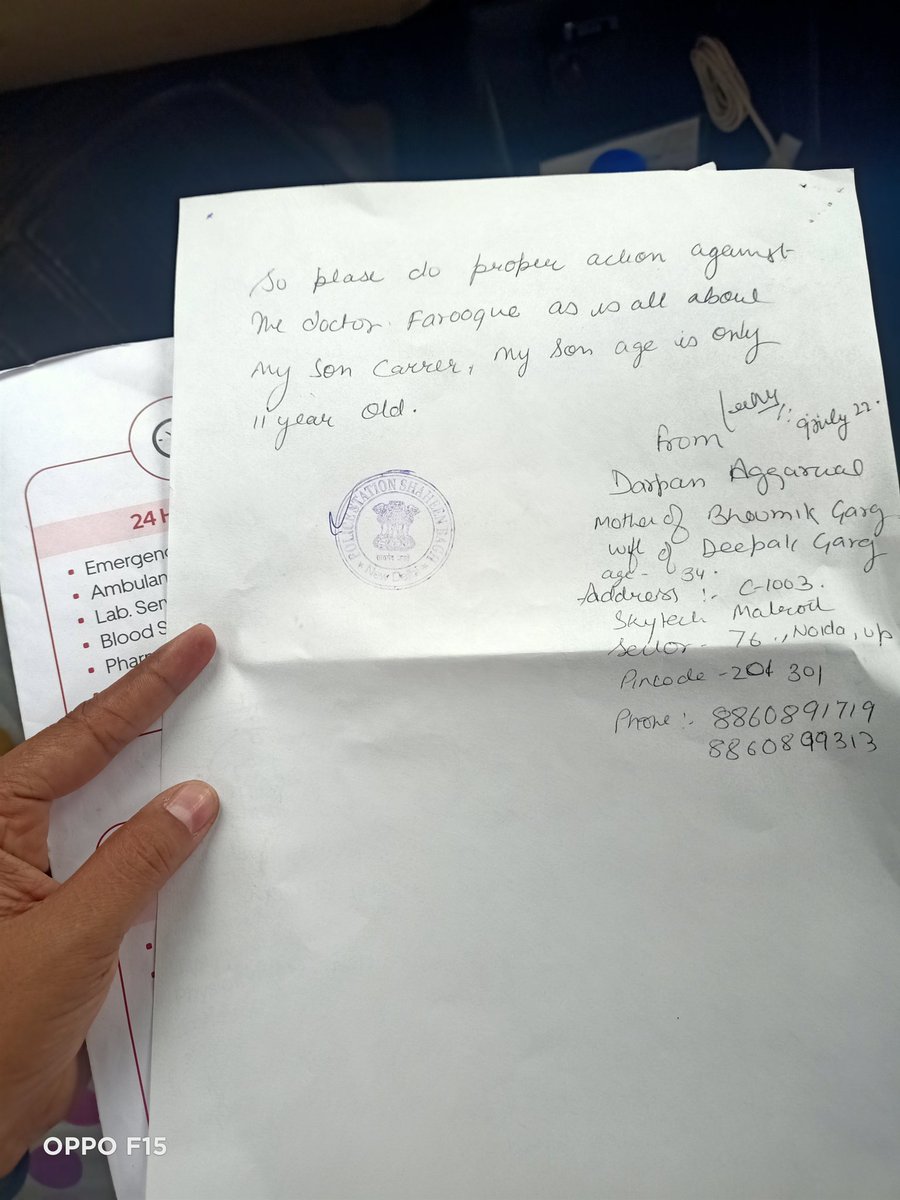 So please do proper action against
the doctor. Farooque as is all about
My Son Carrer, My son age is only
11 year old.
9 July 22.
from
Darpan Aggarwal
Mother of Bhowmik Garg
wife of Deepak Garg
age - 34.
Address :- C-1003.
Skytech Matrott
Sector - 76., Noida, up
Pincode - 201 301
Phone :- 8860891719
8860899313
POLICE STATION SHAHEEN BAGH
New Delhi
24 H
• Emergenc
• Ambulan
• Lab. Ser
• Blood S
• Phar
OPPO F15